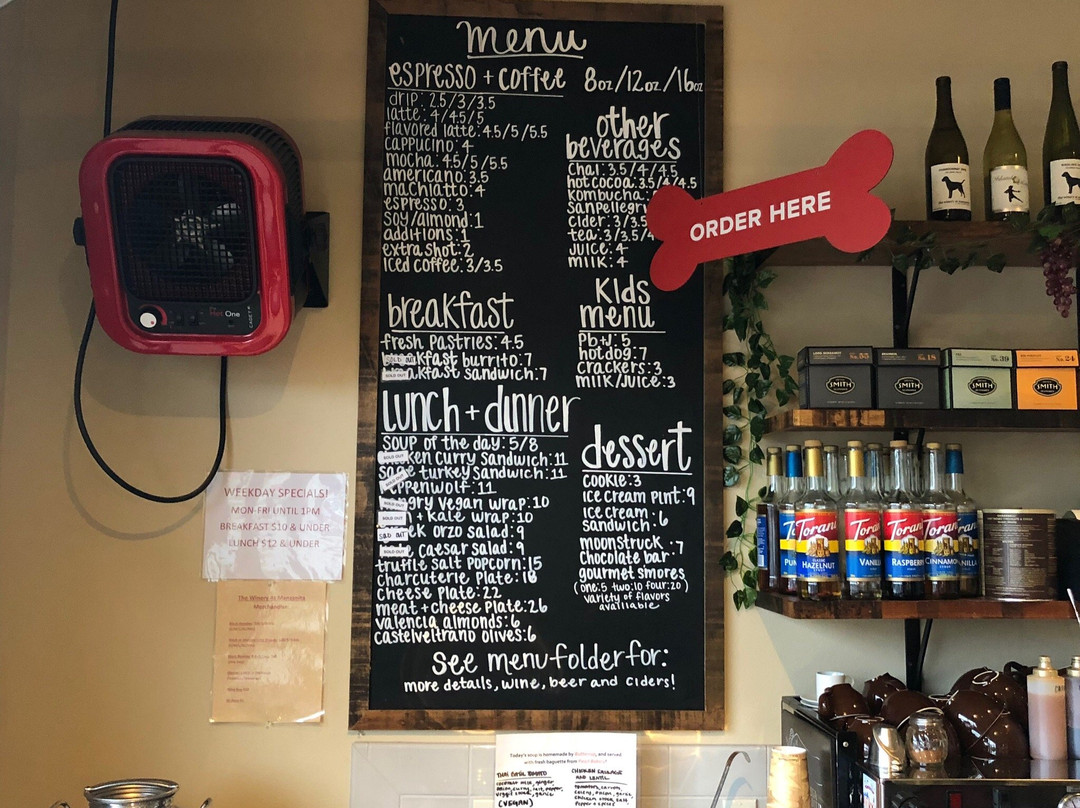 menu
espresso + coffee 8oz/12oz/16oz
drip: 2.5/3/3.5
latte: 4/4.5/5
flavored latte: 4.5/5/5.5
cappucino: 4
mocha: 4.5/5/5.5
americano: 3.5
machiatto: 4
espresso: 3
soy/almond: 1
additions: 1
extra shot: 2
iced coffee: 3/3.5
other
beverages
chai: 3.5/4/4.5
hot cocoa: 3.5/4/4.5
kombucha:
sanpellegri
cider: 3/3.5
tea: 3/3.5/4
juice: 4
milk: 4
ORDER HERE
breakfast
fresh pastries: 4.5
SOLD OUT kfast burrito: 7
SOLD OUT akfast sandwich: 7
kids
menu
Pb+J: 5
hotdog: 7
crackers: 3
milk/juice: 3
lunch + dinner
soup of the day: 5/8
SOLD OUT ken curry sandwich: 11
sage turkey sandwich: 11
ppenwolf: 11
SOLD OUT gry vegan wrap: 10
SOLD OUT + kale wrap: 10
SOLD OUT ek orzo salad: 9
SOLD OUT e caesar salad: 9
truffle salt popcorn: 15
charcuterie plate: 18
cheese plate: 22
meat + cheese plate: 26
valencia almonds: 6
castelveltrano olives: 6
dessert
cookie: 3
ice cream pint: 9
ice cream
sandwich: 6
moonstruck
chocolate bar: 7
gourmet smores
(one: 5 two: 10 four: 20)
variety of flavors
available
see menu folder for:
more details, wine, beer and ciders!
WEEKDAY SPECIALS!
MON-FRI UNTIL 1PM
BREAKFAST $10 & UNDER
LUNCH $12 & UNDER
The Winery at Manzanita
Merchandise
Hot One
CADET
No. 55
SMITH
No. 18
SMITH
No. 39
SMITH
No. 24
SMITH
Torani
PUM
Torani
CLASSIC
HAZELNUT
Torani
VANILL
Torani
RASPBERR
Torani
CINNAMON
VANILLA
Today's soup is homemade by Buttercup, and served
with fresh baguette from
THAI BASIL TOMATO
coconut milk, ginger,
(VEGAN)
CHICKEN SAUSAGE
AND LENTIL